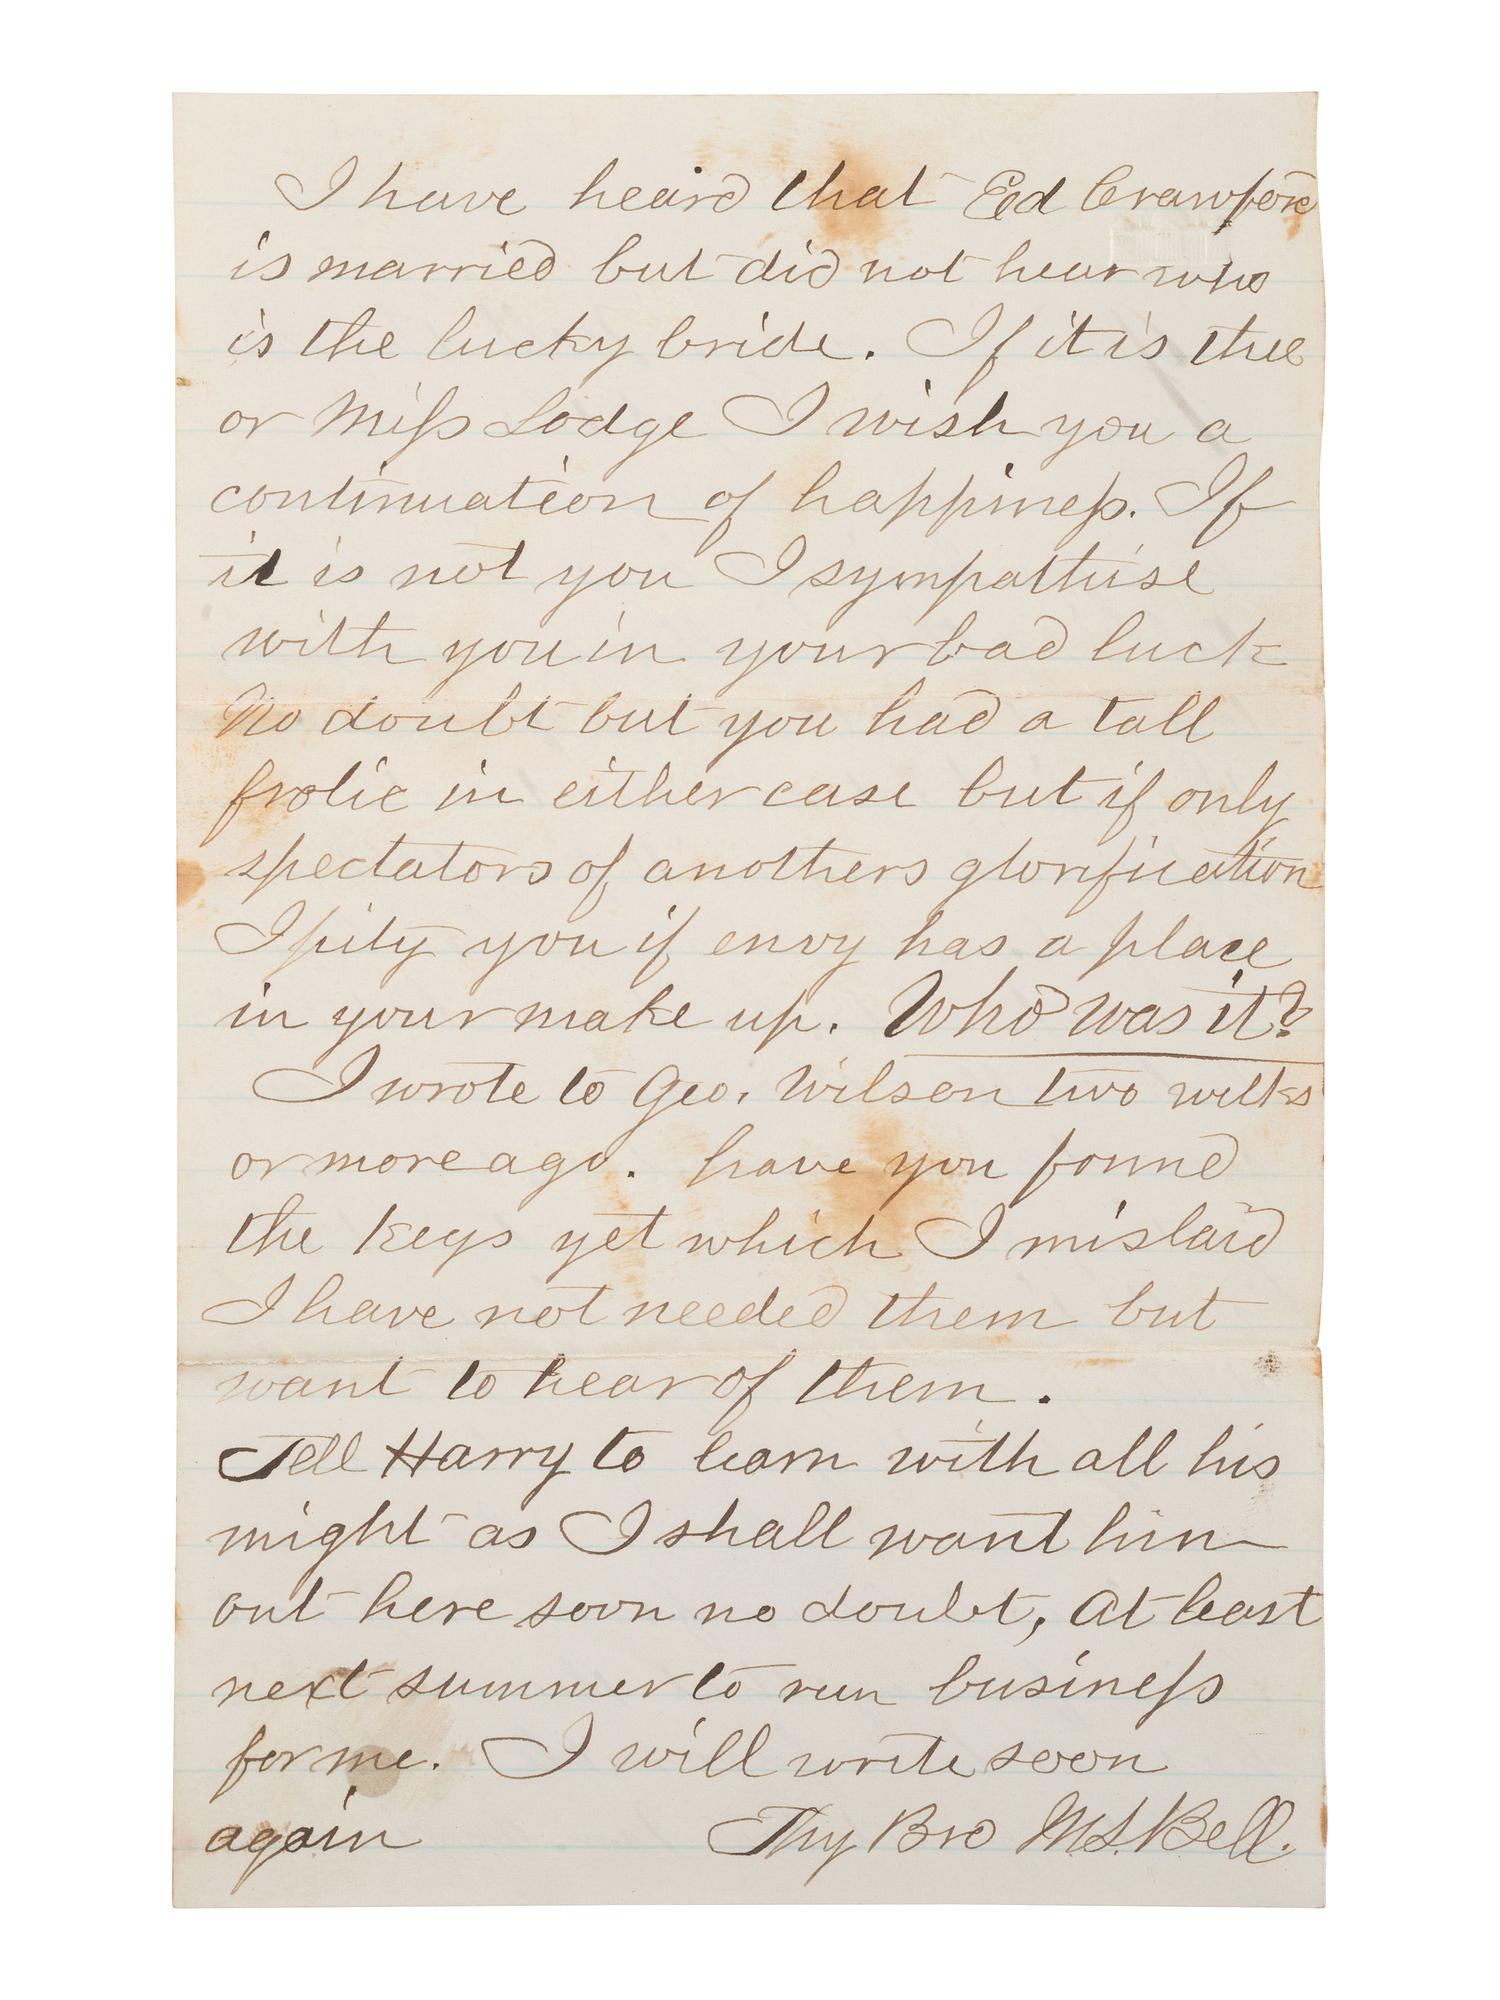 I have heard that Ed Crawford
is married but did not hear who
is the lucky bride. If it is thee
or Miss Lodge I wish you a
continuation of happiness. If
it is not you I sympathise
with you in your bad luck
No doubt but you had a tall
frolic in either case but if only
spectators of anothers glorification
I pity you if envy has a place
in your make up. Who was it?
I wrote to Geo. Wilson two weeks
or more ago. have you found
the keys yet which I mislaid
I have not needed them but
want to hear of them.
Tell Harry to learn with all his
might as I shall want him
out here soon no doubt, at least
next summer to run business
for me. I will write soon
again Thy Bro M.S. Bell.